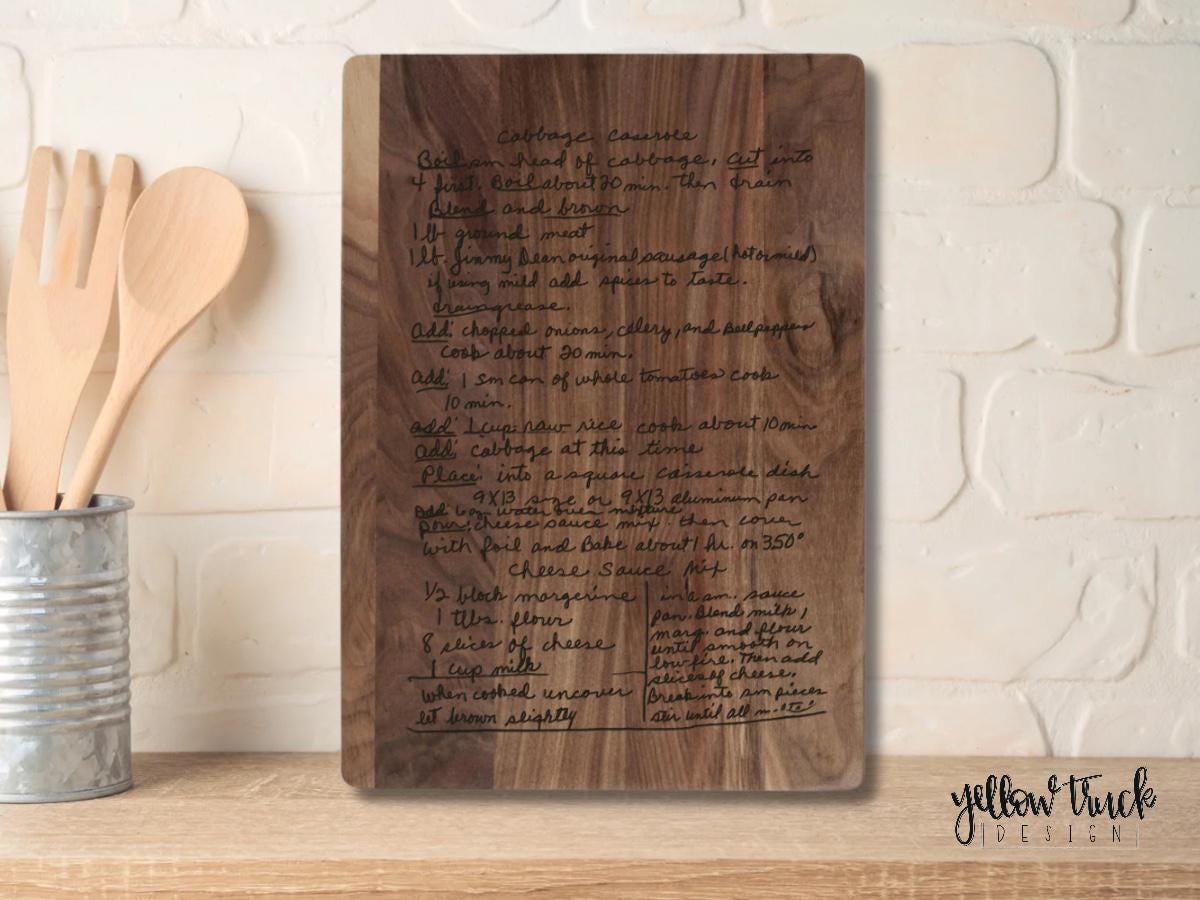 Cabbage Caserole
Boil sm head of cabbage, cut into
4 first. Boil about 20 min. then drain
Blend and brown
1 lb ground meat
1 lb. Jimmy Dean original sausage (hot or mild)
if using mild add spices to taste.
drain grease.
Add: chopped onions, celery, and Bellpeppers
Cook about 20 min.
add: 1 sm can of whole tomatoes cook
10 min.
add: 1 cup raw rice cook about 10 min
add: cabbage at this time
Place: into a square casserole dish
9X13 size or 9X13 aluminum pan
Add 6 oz water over mixture
pour: cheese sauce mix. then cover
with foil and Bake about 1 hr. on 350°
Cheese Sauce Mix
1/2 block margerine
1 Tbls. flour
8 slices of cheese
1 cup milk
when cooked uncover
let brown slightly
in a sm. sauce
pan. Blend milk,
marg. and flour
until smooth on
low fire. Then add
slices of cheese.
Break into sm pieces
stir until all
yellow truck
DESIGN